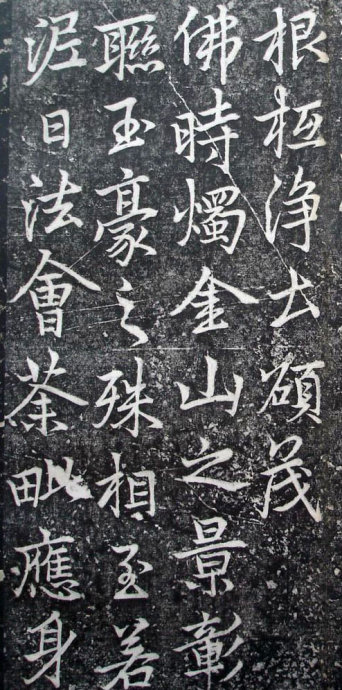 根柢淨土碩茂
佛時燭金山之景彰
聯玉豪之殊相至若
泥日法會荼毗應身